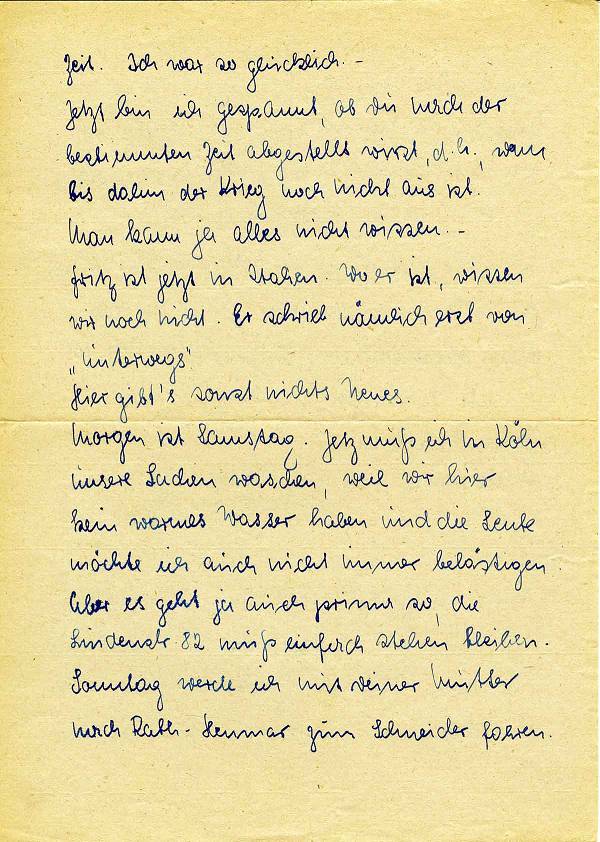 Zeit. Ich war so glücklich. –
Jetzt bin ich gespannt, ob Du nach der
bestimmten Zeit abgestellt wirst, d.h., wenn
bis dahin der Krieg noch nicht aus ist.
Man kann ja alles nicht wissen. –
Fritz ist jetzt in Italien. Wo er ist, wissen
wir noch nicht. Er schrieb nämlich erst von
„unterwegs"
Hier gibt's sonst nichts Neues.
Morgen ist Samstag. Jetz muß ich in Köln
unsere Sachen waschen, weil wir hier
kein warmes Wasser haben und die Leute
möchte ich auch nicht immer belästigen.
Aber es geht ja auch prima so, die
Lindenstr. 82 muß einfach stehen bleiben.
Sonntag werde ich mit deiner Mutter
nach Rath-Heumar zum Schneider fahren.